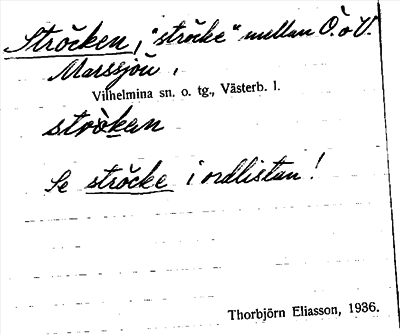 Ströcken, "ströcke" mellan Ö. o V.
Marssjön.
Vilhelmina sn. o. tg., Västerb. l.
ströken
Se ströcke i ordlistan!
Thorbjörn Eliasson, 1936.